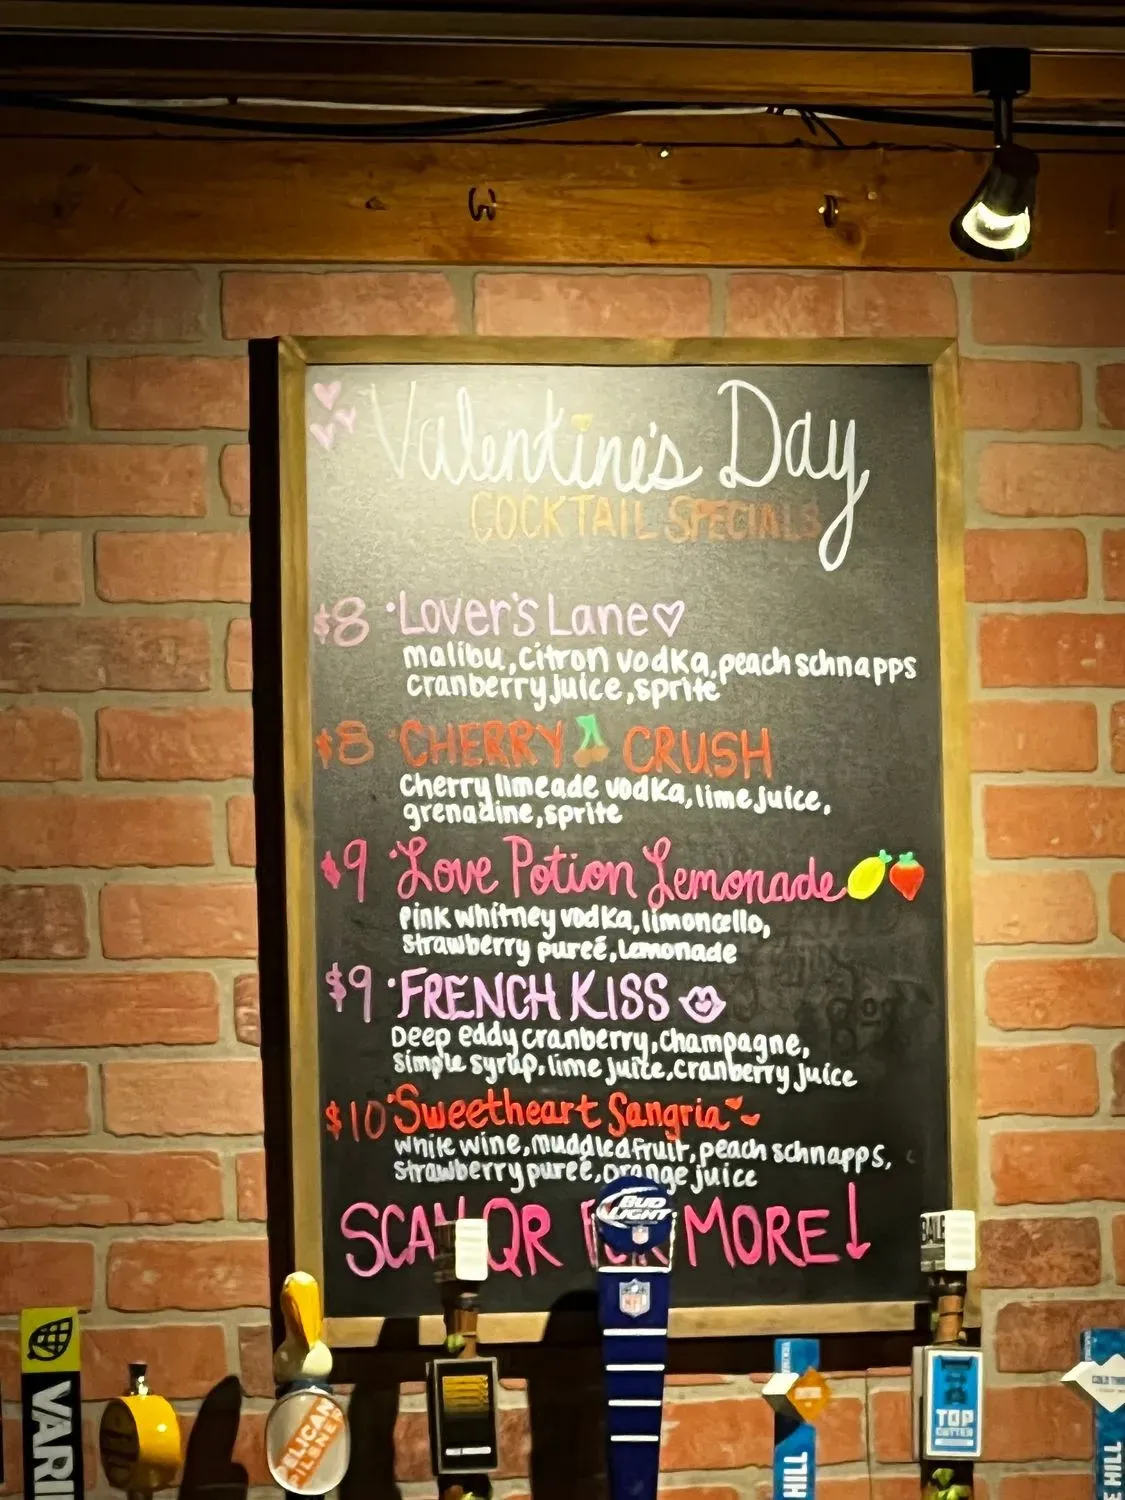 Valentine's Day
COCKTAIL SPECIALS
$8 · Lover's Lane
malibu, citron vodka, peach schnapps
cranberry juice, sprite
$8 · CHERRY CRUSH
Cherry limeade vodka, lime juice,
grenadine, sprite
$9 · Love Potion Lemonade
pink whitney vodka, limoncello,
strawberry pureé, Lemonade
$9 · FRENCH KISS
Deep eddy cranberry, champagne,
simple syrup, lime juice, cranberry juice
$10 · Sweetheart Sangria
white wine, muddled fruit, peach schnapps,
strawberry pureé, orange juice
SCAN QR FOR MORE!
BUD
LIGHT
NFL
VARI
PELICAN
PILSNER
BALE
TOP
CUTTER
HILL
HILL